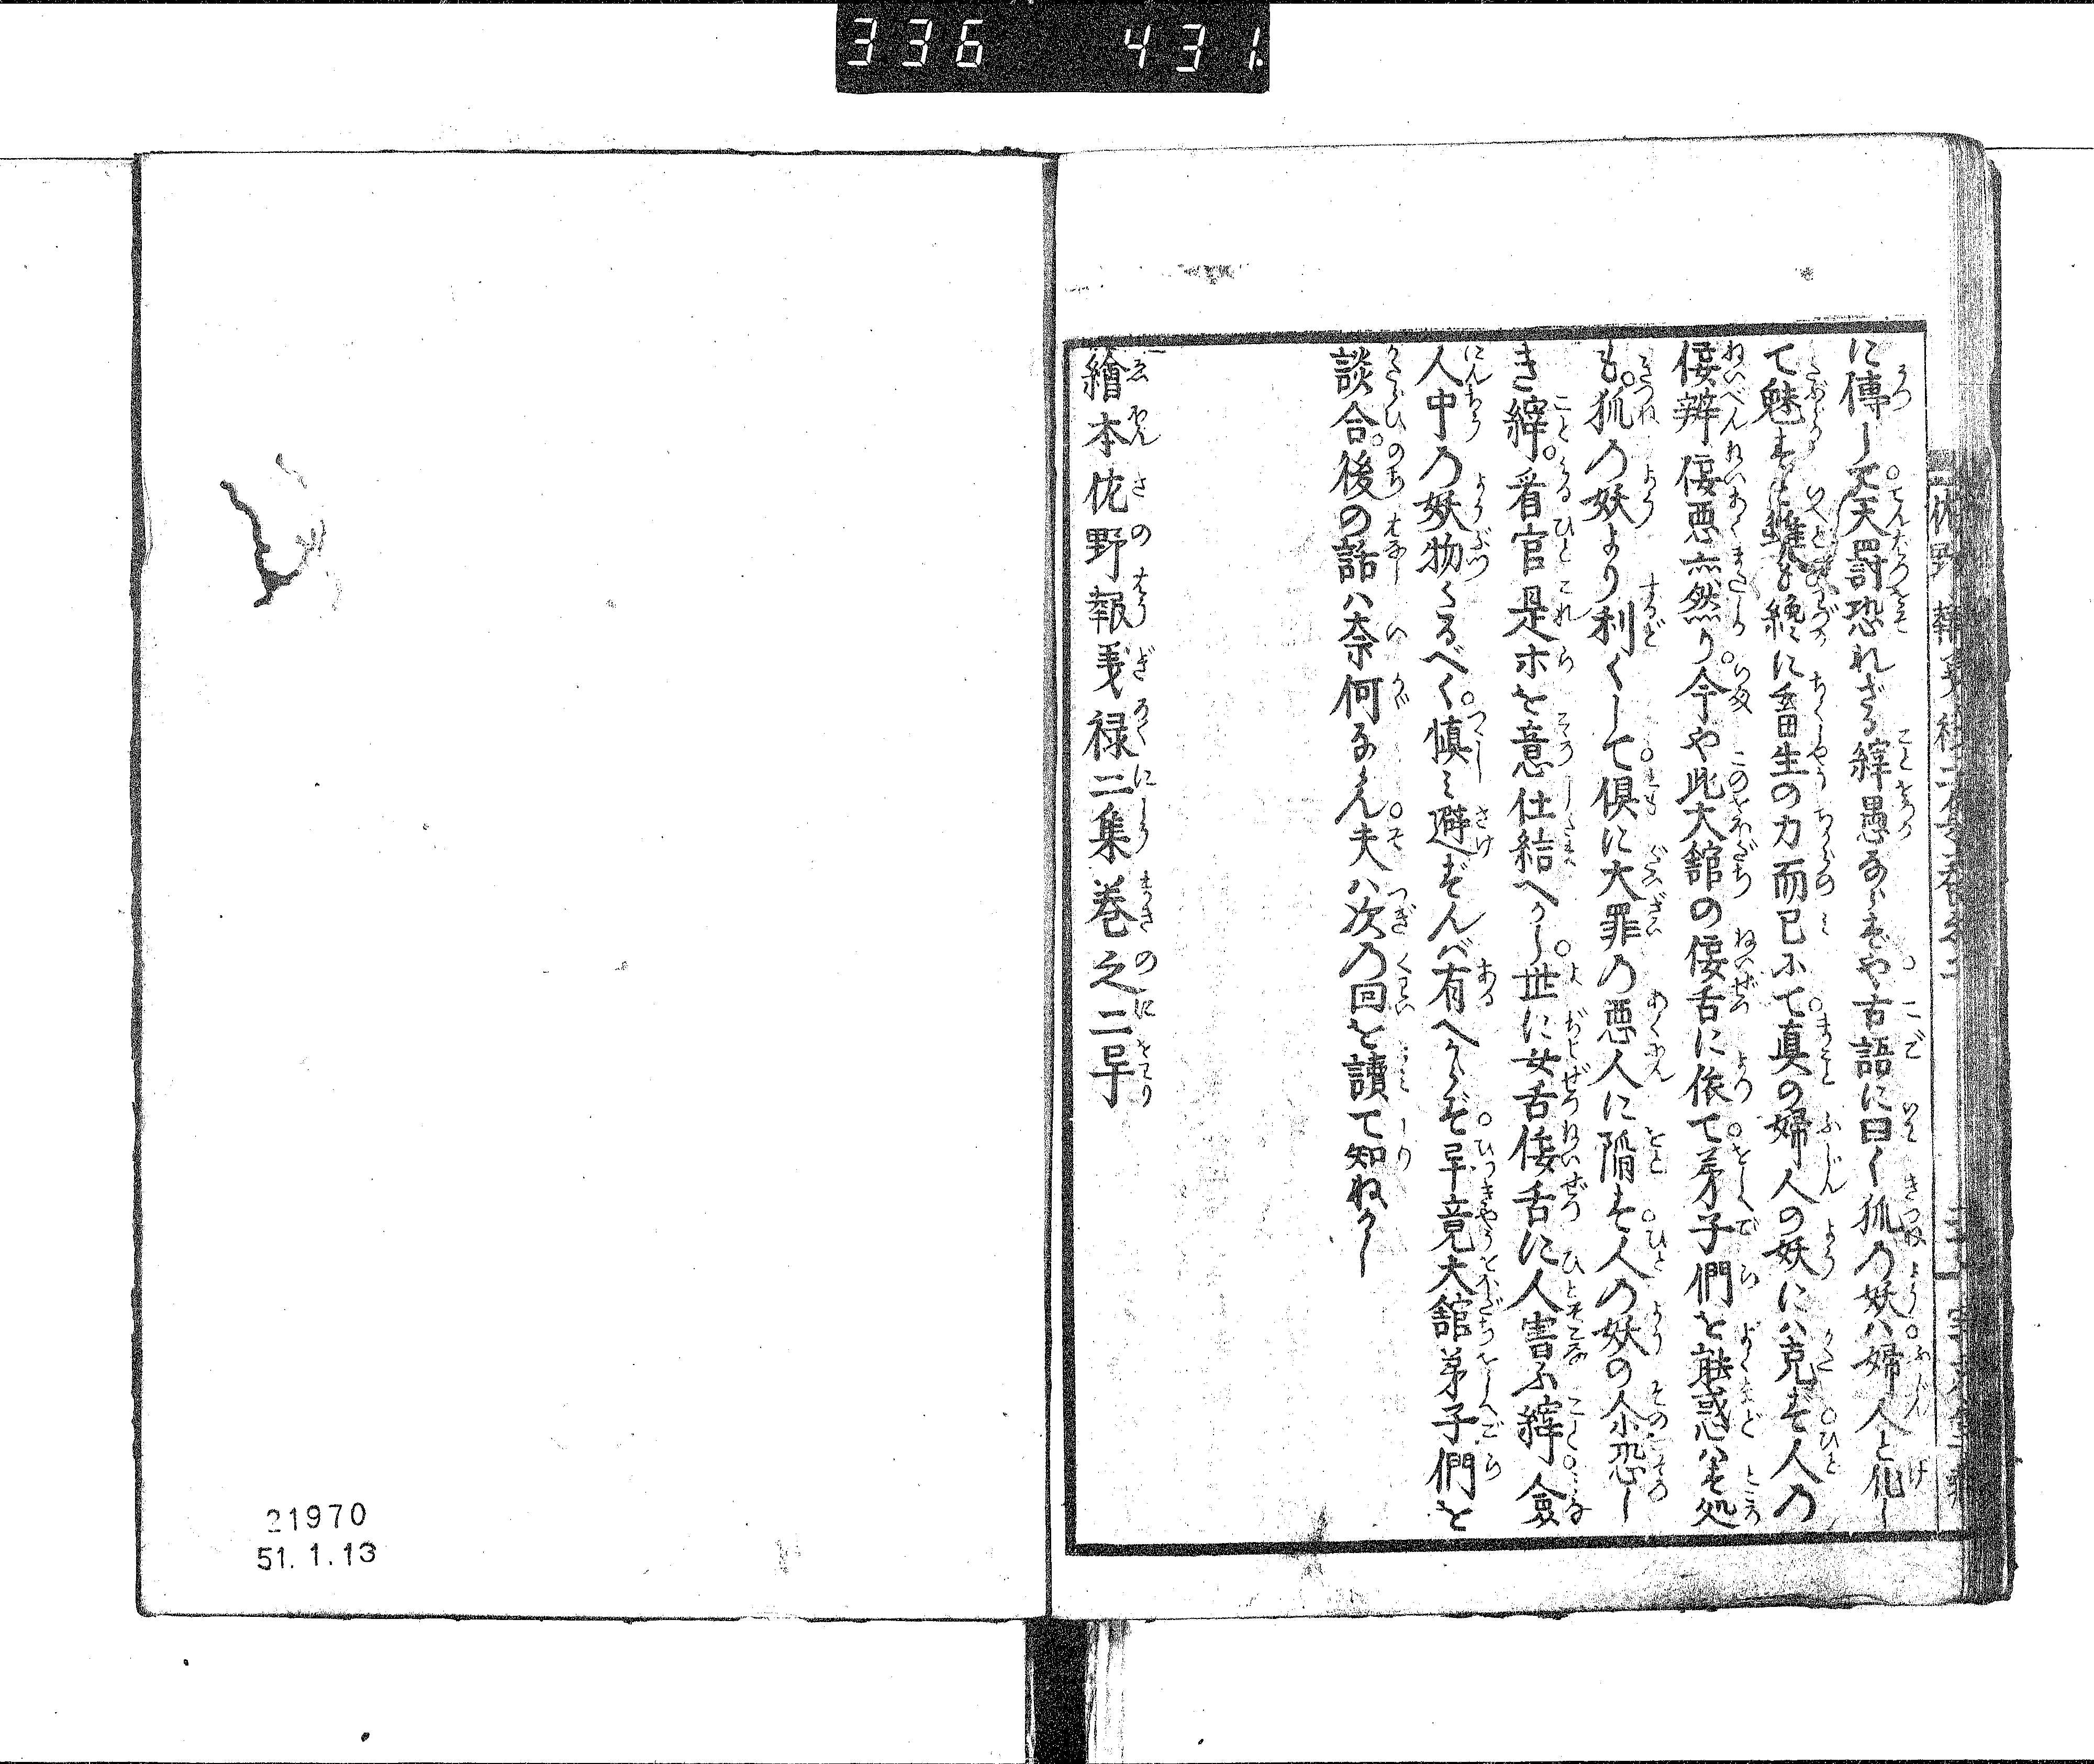 336 431.
に傳して天罸恐れざる縡愚ならずや古語に曰く狐の妖ハ婦人と化し
て魅すと雖ども終に畜生の力而已ふて真の婦人の妖にハ克ず人の
佞辨佞悪亦然り今や此大舘の佞舌に依て弟子們を能惑ハす処
も狐の妖より利くして倶に大罪の悪人に陥す人の妖の尒恐し
き縡看官是ホを意仕結へかし世に女舌佞舌に人害ふ縡僉
人中の妖物なるべく慎ミ避ずんバ有へからず畢竟大舘弟子們を
談合後の話ハ奈何ならん夫ハ次の回を讀て知ねかし
繪本佐野報義禄二集巻之二畢
21970
51. 1. 13